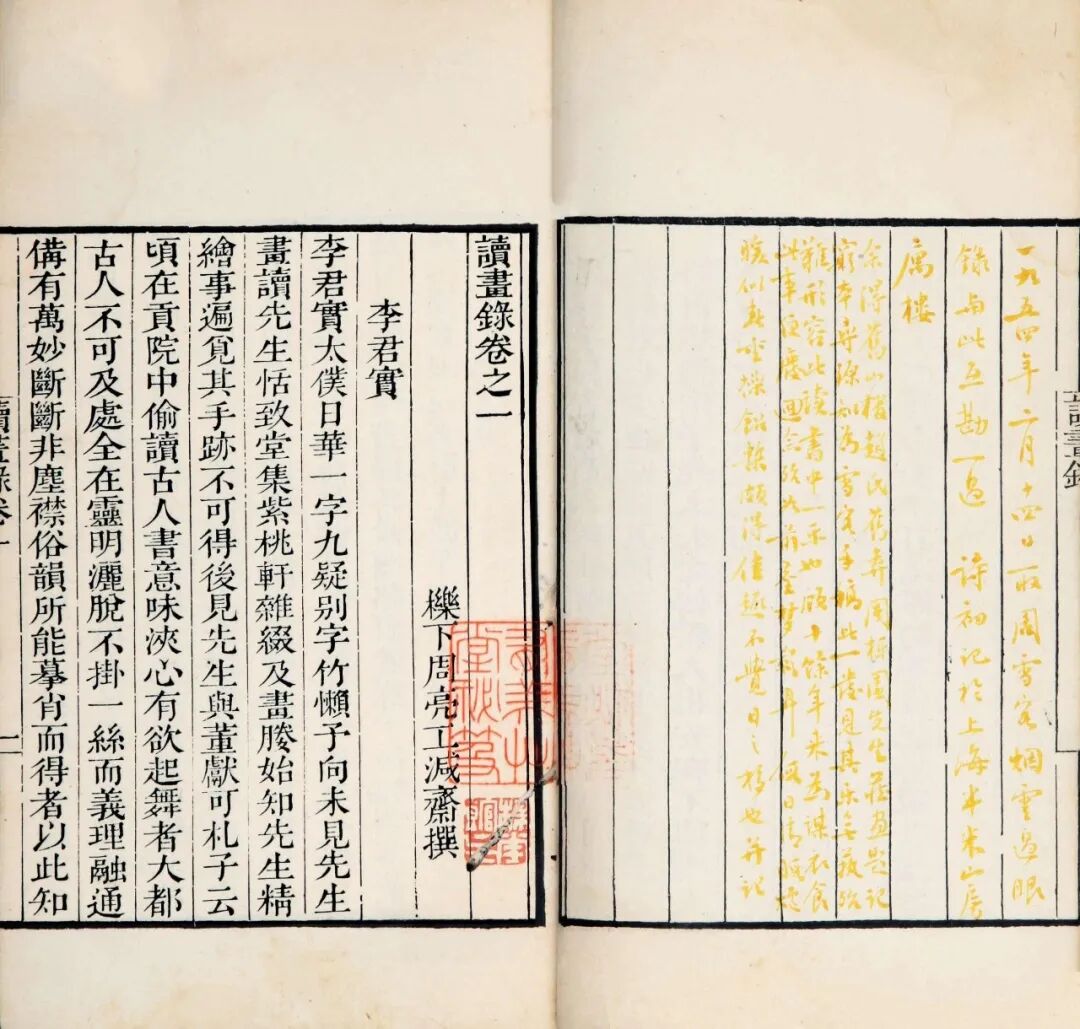 一九五四年二月十四日取周雪客烟雲過眼
錄与此互勘一過 詩初記於上海半米山房
寓樓
余得舊山樓趙氏舊弆周櫟園先生藏畫題記
窮本尋源知為雪客手稿此一歲見其樂無藝殆
難形容此讀書中一乐也顧十餘年来為謀衣食
此事便廢迴念殆如前塵夢
暖似春坐校鉛槧頗得佳趣不覺日之移也并記
讀畫錄
讀畫錄卷之一
櫟下周亮工減齋撰
李君實
李君實太僕日華一字九疑别字竹懶予向未見先生
畫讀先生恬致堂集紫桃軒雜綴及畫媵始知先生精
繪事遍覓其手跡不可得後見先生與董獻可札子云
頃在貢院中偷讀古人書意味浹心有欲起舞者大都
古人不可及處全在靈明灑脫不掛一絲而義理融通
備有萬妙斷斷非塵襟俗韻所能摹肖而得者以此知
讀畫錄卷一
一